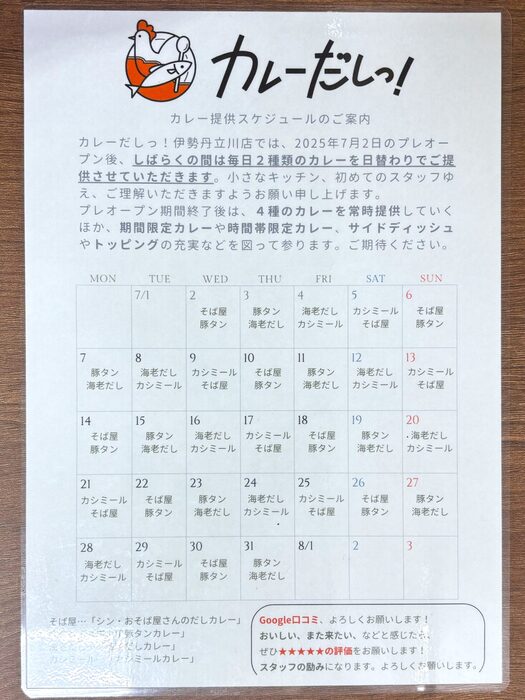 カレーだしっ!
カレー提供スケジュールのご案内
カレーだしっ！伊勢丹立川店では、2025年7月2日のプレオー
プン後、しばらくの間は毎日２種類のカレーを日替わりでご提
供させていただきます。小さなキッチン、初めてのスタッフゆ
え、ご理解いただきますようお願い申し上げます。
プレオープン期間終了後は、４種のカレーを常時提供していく
ほか、期間限定カレーや時間帯限定カレー、サイドディッシュ
やトッピングの充実などを図って参ります。ご期待ください。
MON TUE WED THU FRI SAT SUN
7/1 2 3 4 5 6
そば屋 豚タン 海老だし カシミール そば屋
豚タン 海老だし カシミール そば屋 豚タン
7 8 9 10 11 12 13
豚タン 海老だし カシミール そば屋 豚タン 海老だし カシミール
海老だし カシミール そば屋 豚タン 海老だし カシミール そば屋
14 15 16 17 18 19 20
そば屋 豚タン 海老だし カシミール そば屋 豚タン 海老だし
豚タン 海老だし カシミール そば屋 豚タン 海老だし カシミール
21 22 23 24 25 26 27
カシミール そば屋 豚タン 海老だし カシミール そば屋 豚タン
そば屋 豚タン 海老だし カシミール そば屋 豚タン 海老だし
28 29 30 31 8/1 2 3
海老だし カシミール そば屋 豚タン
カシミール そば屋 豚タン 海老だし
そば屋…「シン・おそば屋さんのだしカレー」
豚タンカレー」
だしカレー」
カシミールカレー」
Google口コミ、よろしくお願いします！
おいしい、また来たい、などと感じたら、
ぜひ★★★★★の評価をお願いします！
スタッフの励みになります。よろしくお願いします。